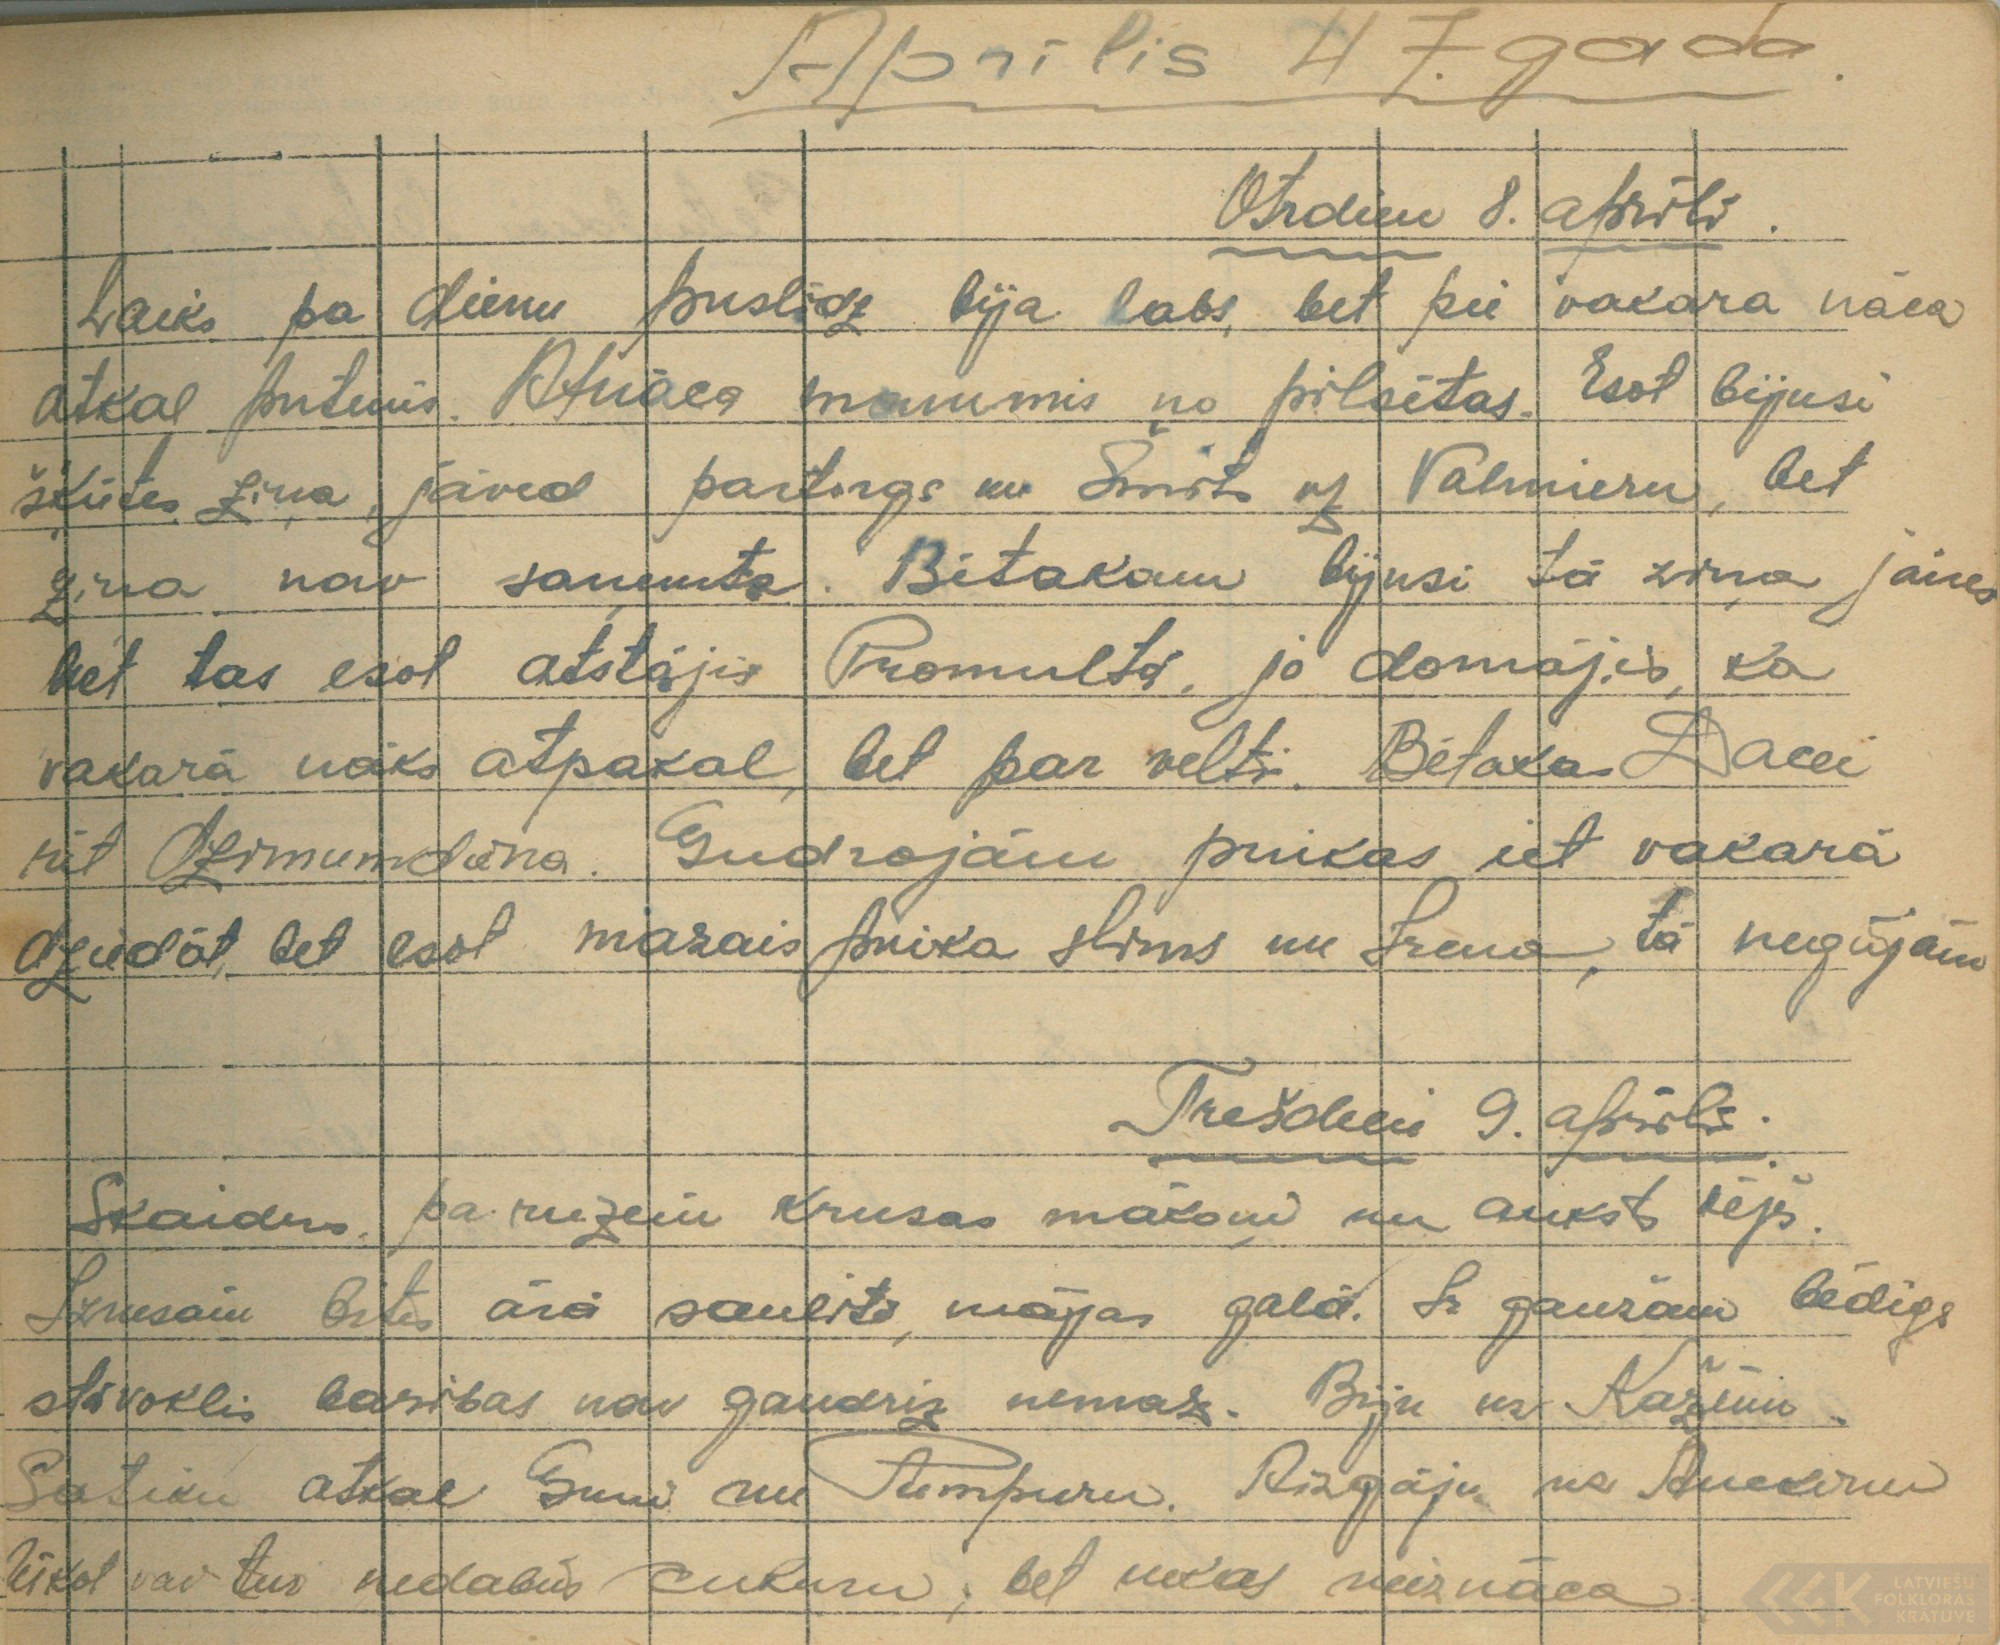 Aprīlis 47. gada.
Otrdien 8. aprīlī.
Laiks pa dienu puslīdz bija labs, bet pie vakara nāca
atkal putenis. Atnāca mammis no pilsētas. Esot bijusi
šķūtes ziņa, jāved partorgs un Šmits uz Valmieru, bet
ziņa nav saņemta. Bētakam bijusi tā ziņa
bet tas esot atstājis Promultā, jo domājis, ka
vakarā nāks atpakaļ, bet par velti. Bētakas Dacei
rīt dzimumdiena. Gudrojām puikas iet vakarā
dziedāt, bet esot mazais puika slims un Irena, tā negājām
Trešdien 9. aprīlī.
Skaidrs, pa reizei krusas mākoņi un auksts vējš.
Iznesām bites ārā saulītē, mājas galā. Ir gaužām bēdīgs
stāvoklis barības nav gandrīz nemaz. Biju uz Kažēmi.
Satiku atkal Guni un Pumpuru. Aizgāju uz
lūkot vai tur nedabūs cukuru, bet nekas neiznāca
LATVIEŠU
FOLKLORAS
KRĀTUVE